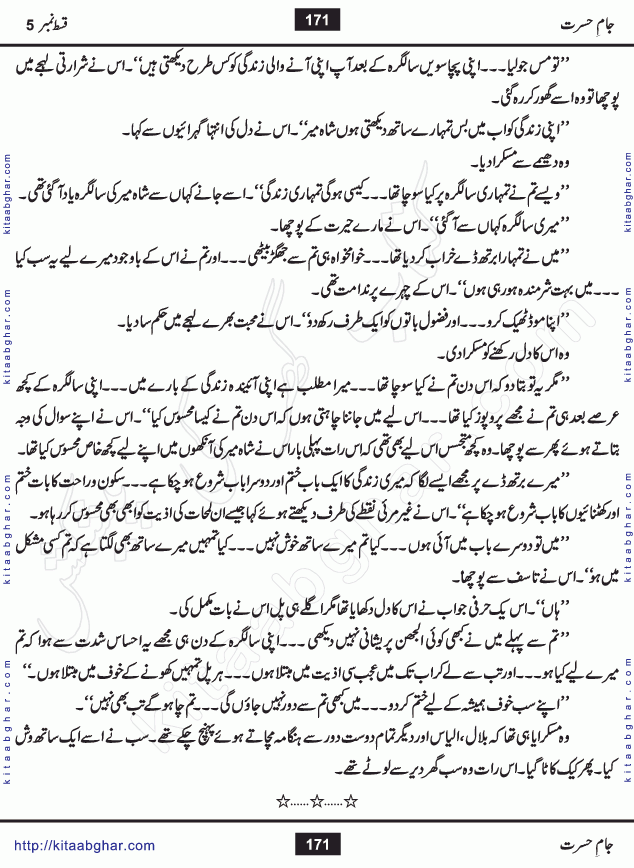 جامِ حسرت
171
قسط نمبر 5
’’تو مس جولیا۔۔۔اپنی پچاسویں سالگرہ کے بعد آپ اپنی آنے والی زندگی کو کس طرح دیکھتی ہیں‘‘۔اس نے شرارتی لہجے میں
پوچھا تو وہ اسے گھور کر رہ گئی۔
’’اپنی زندگی کو اب میں بس تمہارے ساتھ دیکھتی ہوں شاہ میر‘‘۔اس نے دل کی انتہا گہرائیوں سے کہا۔
وہ دھیمے سے مسکرا دیا۔
’’ویسے تم نے تمہاری سالگرہ پر کیا سوچا تھا۔۔۔کیسی ہوگی تمہاری زندگی‘‘۔اسے جانے کہاں سے شاہ میر کی سالگرہ یاد آگئی تھی۔
’’میری سالگرہ کہاں سے آگئی‘‘۔اس نے مارے حیرت کے پوچھا۔
’’میں نے تمہارا برتھ ڈے خراب کر دیا تھا۔۔۔خوامخواہ ہی تم سے جھگڑ بیٹھی۔۔۔اور تم نے اس کے باوجود میرے لیے یہ سب کیا
۔۔۔میں بہت شرمندہ ہو رہی ہوں‘‘۔اس کے چہرے پر ندامت تھی۔
’’اپنا موڈ ٹھیک کرو۔۔۔اور فضول باتوں کو ایک طرف رکھ دو‘‘۔اس نے محبت بھرے لہجے میں حکم سا دیا۔
وہ اس کا دل رکھنے کو مسکرا دی۔
’’مگر یہ تو بتا دو کہ اس دن تم نے کیا سوچا تھا۔۔۔میرا مطلب ہے اپنی آئیندہ زندگی کے بارے میں۔۔۔اپنی سالگرہ کے کچھ
عرصے بعد ہی تم نے مجھے پروپوز کیا تھا۔۔۔اس لیے میں جاننا چاہتی ہوں کہ اس دن تم نے کیسا محسوس کیا‘‘۔اس نے اپنے سوال کی وجہ
بتاتے ہوئے پھر سے پوچھا۔وہ کچھ متجسس اس لیے بھی تھی کہ اس رات پہلی بار اس نے شاہ میر کی آنکھوں میں اپنے لیے کچھ خاص محسوس کیا تھا۔
’’میرے برتھ ڈے پر مجھے ایسے لگا کہ میری زندگی کا ایک باب ختم اور دوسرا باب شروع ہو چکا ہے۔۔۔سکون و راحت کا باب ختم
اور کٹھنائیوں کا باب شروع ہو چکا ہے‘‘۔اس نے غیر مرئی نقطے کی طرف دیکھتے ہوئے کہا جیسے ان لمحات کی اذیت کو ابھی بھی محسوس کر رہا ہو۔
’’میں تو دوسرے باب میں آئی ہوں۔۔۔کیا تم میرے ساتھ خوش نہیں۔۔۔کیا تمہیں میرے ساتھ بھی لگتا ہے کہ تم کسی مشکل
میں ہو‘‘۔اس نے تاسف سے پوچھا۔
’’ہاں‘‘۔اس یک حرفی جواب نے اس کا دل دکھایا تھا مگر اگلے ہی پل اس نے بات مکمل کی۔
’’تم سے پہلے میں نے کبھی کوئی الجھن پریشانی نہیں دیکھی۔۔۔اپنی سالگرہ کے دن ہی مجھے یہ احساس شدت سے ہوا کہ تم
میرے لیے کیا ہو۔۔۔اور تب سے لے کر اب تک میں عجب سی اذیت میں مبتلا ہوں۔۔۔ہر پل تمہیں کھونے کے خوف میں مبتلا ہوں۔‘‘
’’اپنے سب خوف ہمیشہ کے لیے ختم کردو۔۔۔میں کبھی تم سے دور نہیں جاؤں گی۔۔۔تم چاہو گے تب بھی نہیں‘‘۔
وہ مسکرایا ہی تھا کہ بلال،الیاس اور دیگر تمام دوست دور سے ہنگامہ مچاتے ہوئے پہنچ چکے تھے۔سب نے اسے ایک ساتھ وش
کیا۔پھر کیک کاٹا گیا۔اس رات وہ سب گھر دیر سے لوٹے تھے۔
☆......☆......☆
جامِ حسرت
171
http://kitaabghar.com
kitaabghar.com
kitaabghar.com
kitaabghar.com
kitaabghar.com
kitaabghar.com
kitaabghar.com
kitaabghar.com
kitaabghar.com
kitaabghar.com
kitaabghar.com